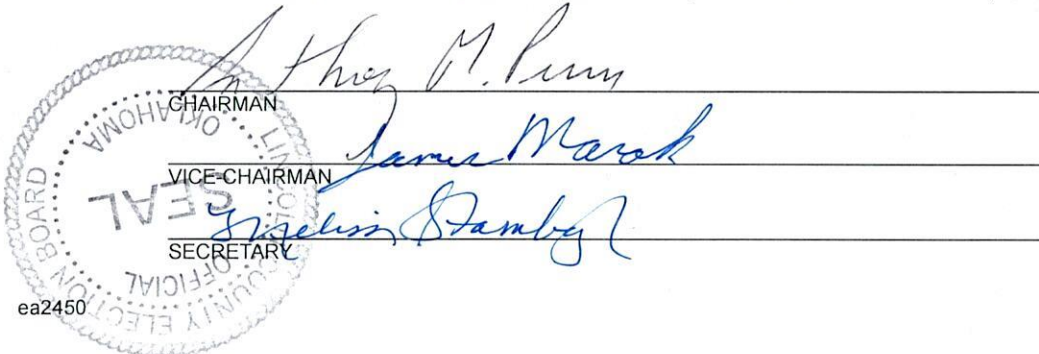 Anthony M. Penn
CHAIRMAN
James Marok
VICE-CHAIRMAN
Melissa Stambaugh
SECRETARY
LINCOLN COUNTY ELECTION BOARD
OKLAHOMA
OFFICIAL
SEAL
ea2450